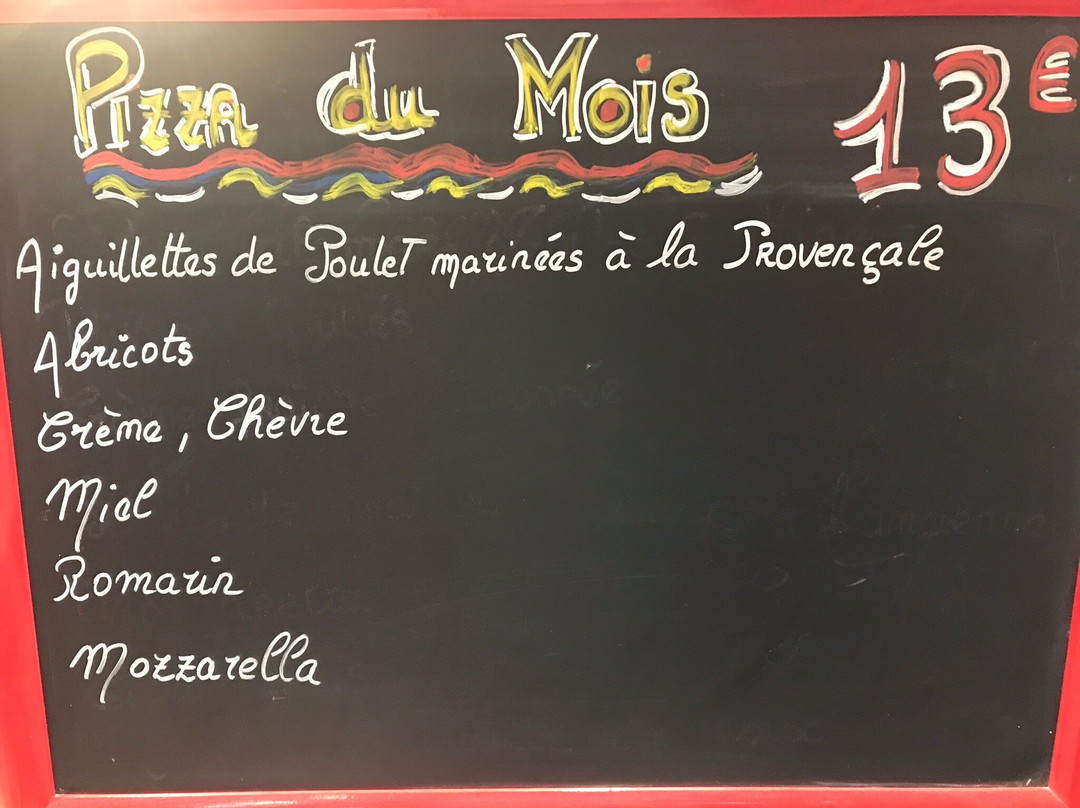 Pizza du Mois 13€
Aiguillettes de Poulet marinées à la Provençale
Abricots
Crème, Chèvre
Miel
Romarin
Mozzarella